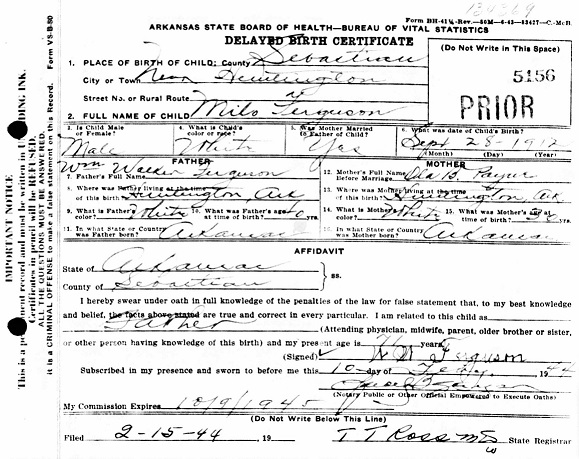 134369
Form BH-41¼-Rev.-50M-6-43-13627-C.-McR.
ARKANSAS STATE BOARD OF HEALTH—BUREAU OF VITAL STATISTICS
DELAYED BIRTH CERTIFICATE
(Do Not Write in This Space)
5156
PRIOR
1. PLACE OF BIRTH OF CHILD; County Sebastian
City or Town Near Huntington
Street No. or Rural Route
2. FULL NAME OF CHILD Milo Ferguson
3. Is Child Male or Female? Male
4. What is Child's color or race? White
5. Was Mother Married to Father of Child? Yes
6. What was date of Child's Birth? Sept 28-1912
(Month) (Day) (Year)
FATHER
7. Father's Full Name Wm Walker Ferguson
8. Where was Father living at the time of this birth? Huntington, Ark
9. What is Father's color? White
10. What was Father's age at time of birth? yrs.
11. In what State or Country was Father born? Arkansas
MOTHER
12. Mother's Full Name Before Marriage Ola B.
13. Where was Mother living at the time of this birth? Huntington, Ark
14. What is Mother's color? White
15. What was Mother's age at time of birth? yrs.
16. In what State or Country was Mother born? Arkansas
AFFIDAVIT
State of Arkansas
County of Sebastian
ss.
I hereby swear under oath in full knowledge of the penalties of the law for false statement that, to my best knowledge
and belief, the facts above stated are true and correct in every particular. I am related to this child as
Father
(Attending physician, midwife, parent, older brother or sister,
or other person having knowledge of birth) and my present age is 71 years.
(Signed) W. W. Ferguson
Subscribed in my presence and sworn to before me this 10 day of Feby, 1944
(Notary Public or Other Official Empowered to Execute Oaths)
My Commission Expires 10/9/1945
(Do Not Write Below This Line)
Filed 2-15-44, 19 T T Ross MD State Registrar
IMPORTANT NOTICE
This is a permanent record and must be written in UNFADING INK.
Certificates in pencil will be REFUSED.
ALL THE QUESTIONS MUST BE ANSWERED.
It is a CRIMINAL OFFENSE to make a false statement on this Record. Form VS-B-80